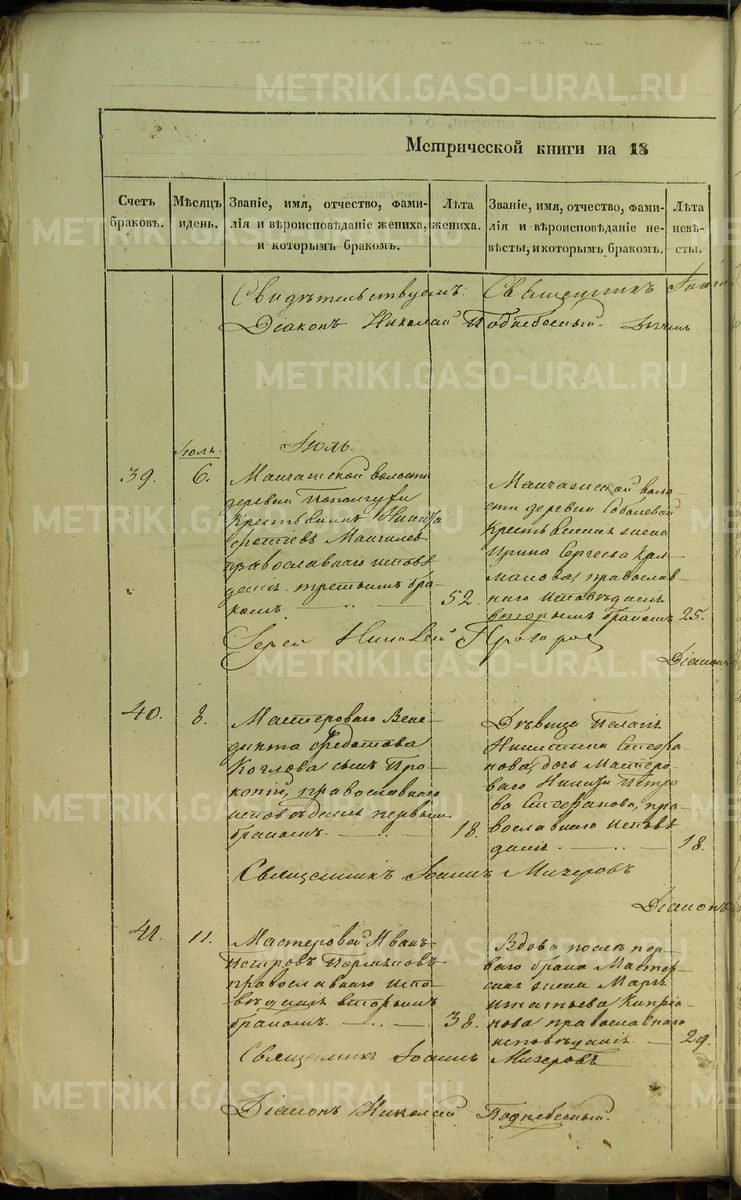 METRIKI.GASO-URAL.RU
Метрической книги на 18
Счетъ браковъ.
Мѣсяцъ идень.
Званіе, имя, отчество, фами-
лія и вѣроисповѣданіе жениха,
и которымъ бракомъ.
Лѣта жениха.
Званіе, имя, отчество, фами-
лія и вѣроисповѣданіе не-
вѣсты, и которымъ бракомъ.
Лѣта невѣ-
сты.
Свидѣтельствуемъ: Священникъ
Діаконъ Николай Поднебесный.
Іюль
Іюль.
39.
6.
Манчажской волости
деревни
Крестьянинъ Никита
православнаго исповѣ
данія третьимъ бра-
комъ
52.
Манчажской воло
сти деревни Соболевой
Крестьянская жена
Ирина Сергеева
православ-
наго исповѣданія
вторымъ бракомъ
25.
Іерей Николай
Діаконъ
40.
8.
Мастероваго Вене
дикта Федотова
Козлова сынъ Про
копій, православнаго
исповѣданія первымъ
бракомъ.
18.
Дѣвица Пелагія
Никитина Стефа
нова, дочь Мастеро-
ваго Никиты Петро
ва Стефанова, пра-
вославнаго исповѣ
данія.
18.
Священникъ Іоаннъ Мичеровъ
Діаконъ
41.
11.
Мастеровой Иванъ
Петровъ
православнаго испо-
вѣданія вторымъ
бракомъ.
38.
Вдова послѣ пер-
ваго брака Мастер-
ская жена Марѳа
Игнатьева Кипрія
нова православнаго
исповѣданія.
29.
Священникъ Іоаннъ Мичеровъ
Діаконъ Николай Поднебесный.